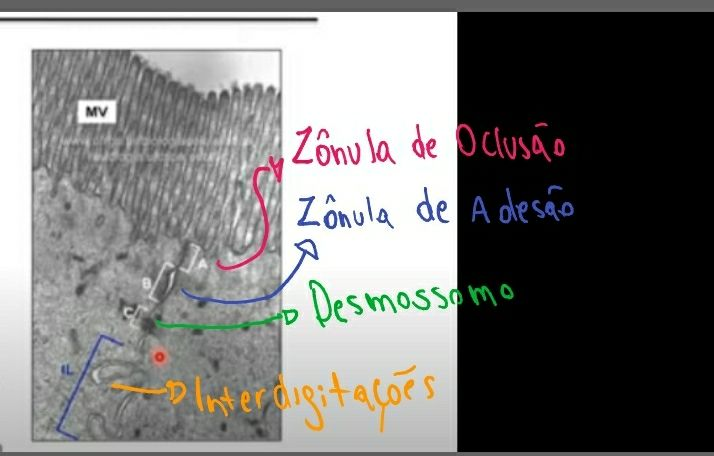 MV
Zônula de Oclusão
Zônula de Adesão
A
B
Desmossomo
C
IL
Interdigitações